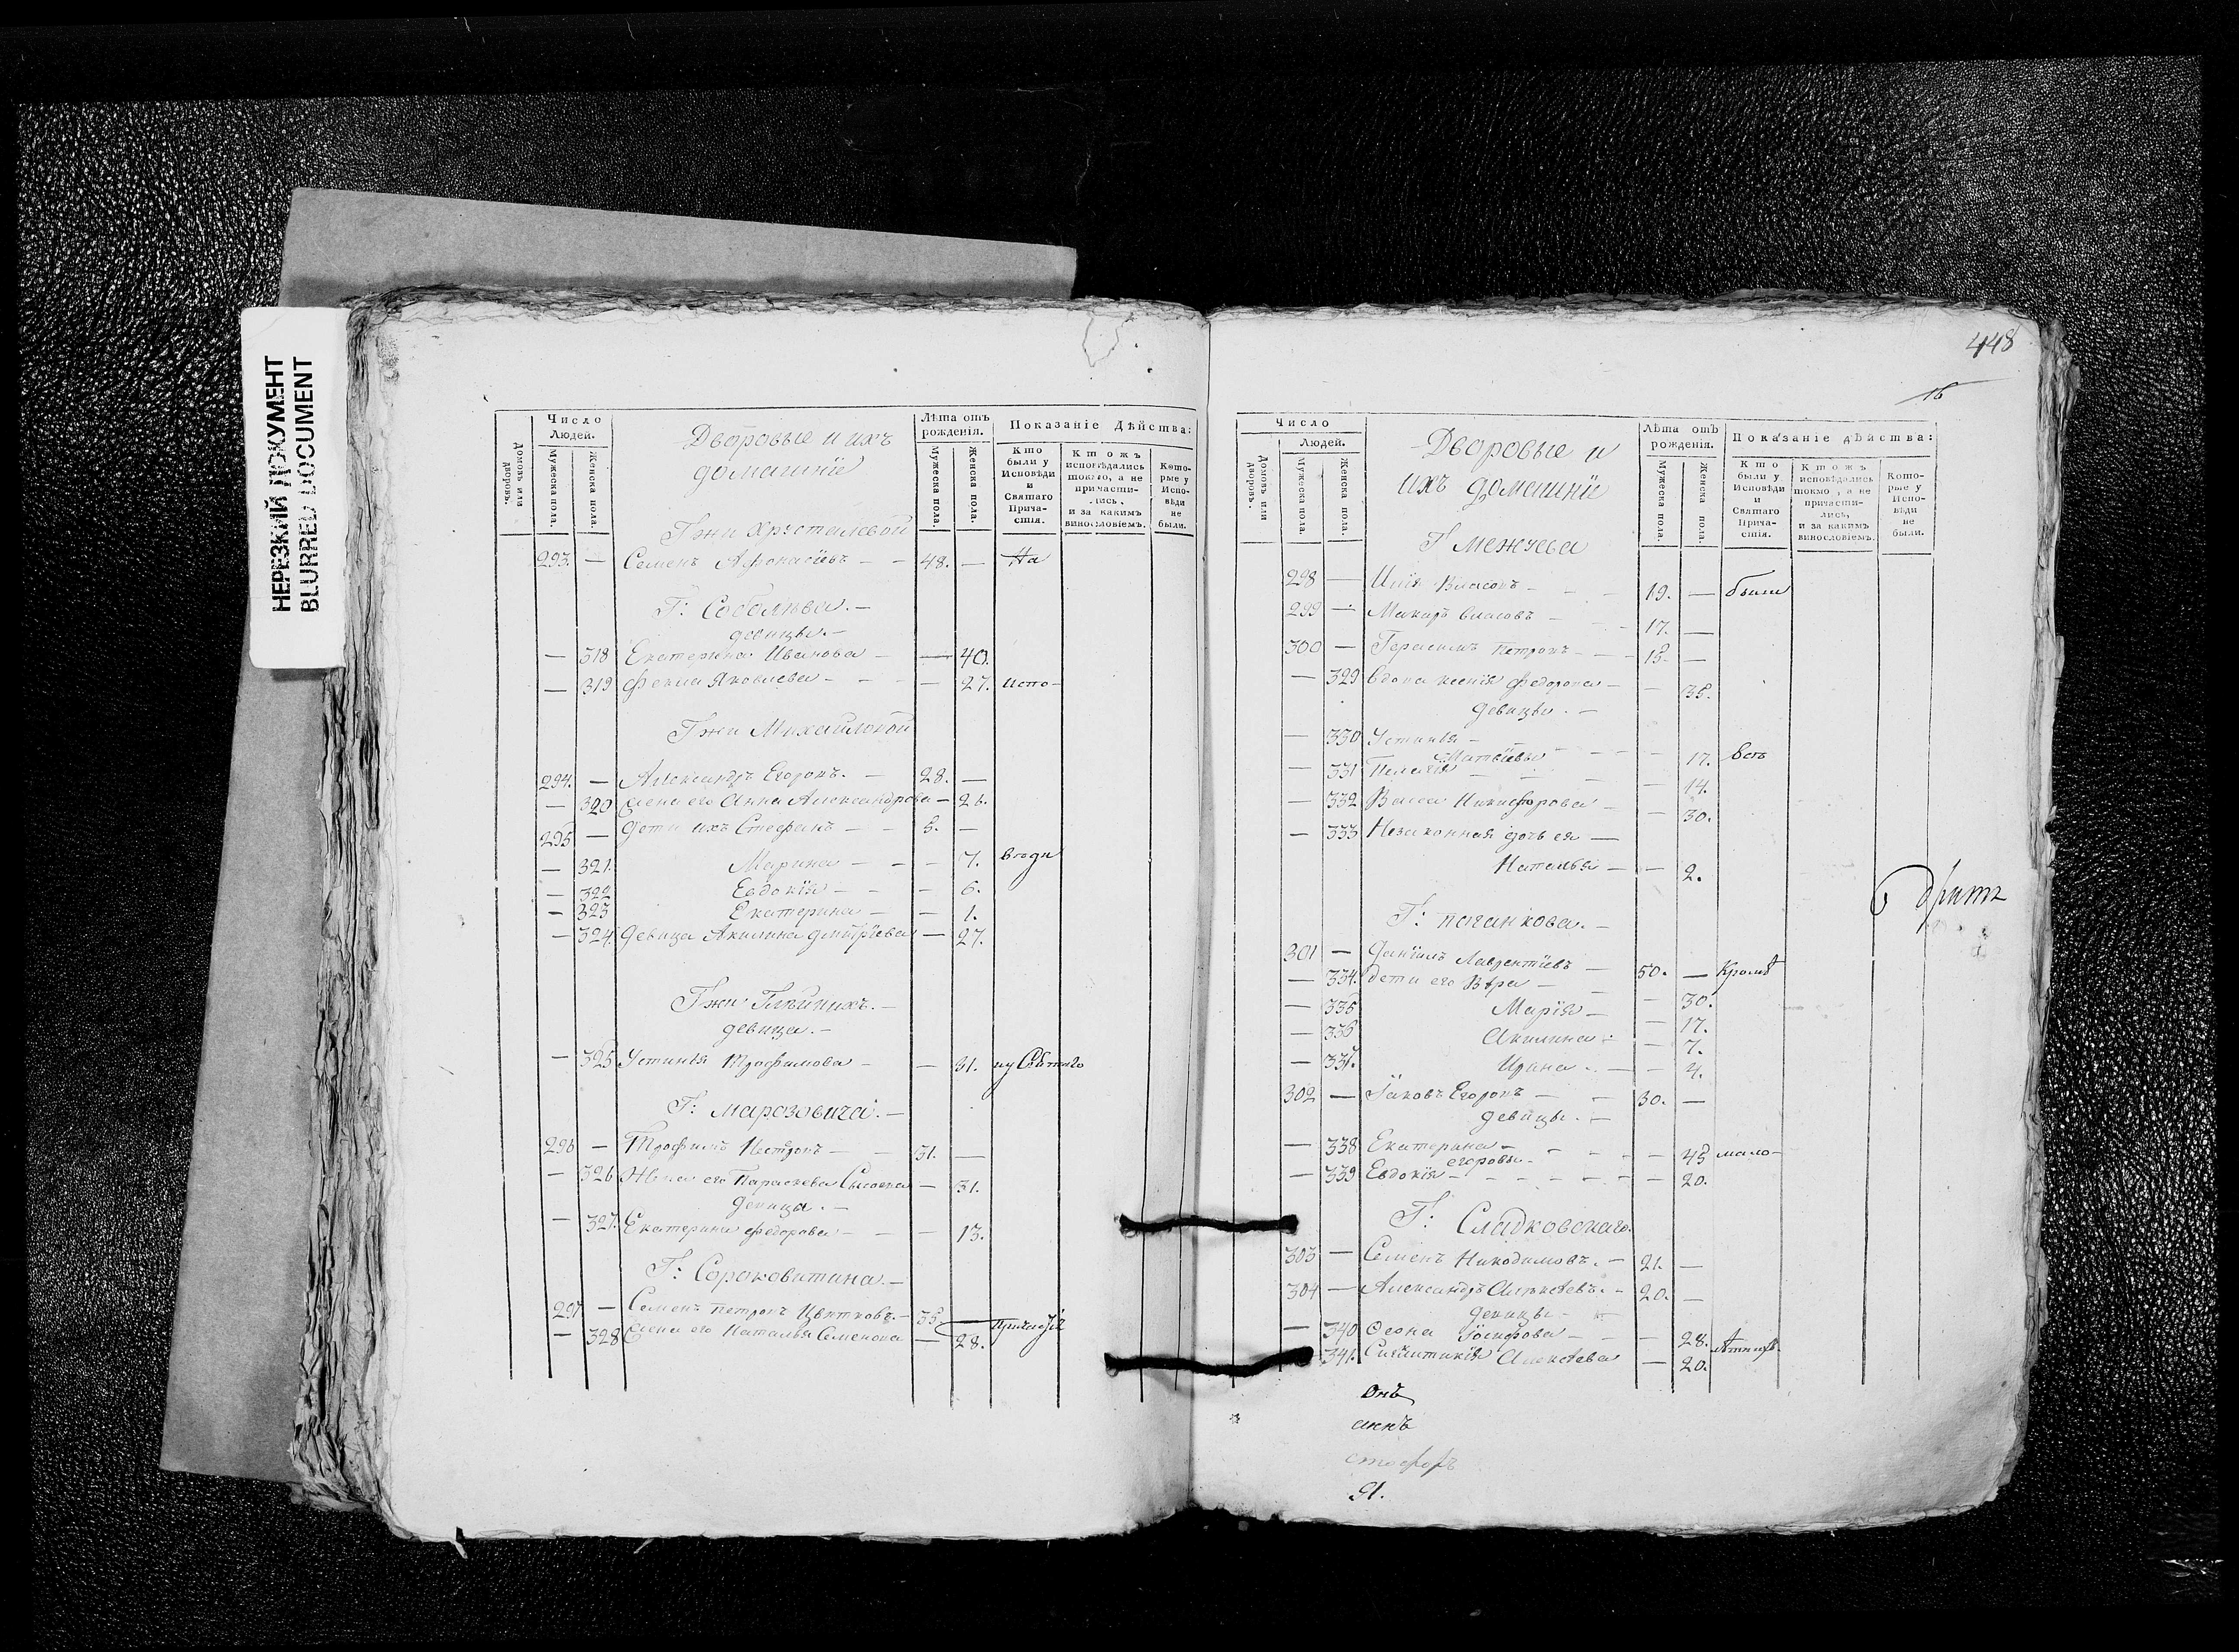 НЕРЕЗКИЙ ДОКУМЕНТ
BLURRED DOCUMENT
Домовъ или дворовъ.
Число Людей.
Мужеска пола.
Женска пола.
Дворовые и ихъ
домашнiе
Лѣта отъ рожденія.
Мужеска пола.
Женска пола.
Показаніе Дѣйства:
Кто были у Исповѣди и Святаго Прича-стія.
Ктожъ исповѣдались токмо, а не причасти-лись, и за какимъ винословіемъ.
Кото-рые у Испо-вѣди не были.
Гжи Хрусталевой
293. — Семенъ Афонасіевъ — — 48. — На
Г: Соболева. —
девицы. —
— 318 Екатерина Иванова — — 40.
— 319 Фекла Яковлева — — — 27. испо-
Гжи Михайловой
294. — Александръ Егоровъ. — 28. —
— 320 жена его Анна Александрова — 26.
295 — Дети ихъ Стефанъ — — 3. —
— 321. Марина — — — 7. вѣди
— 322 Евдокія — — — 6.
— 323 Екатерина — — 1.
— 324. Девица Акилина Дмитріева — 27.
Гжи
девица. —
— 325 Устинія Трофимова — — 31. и у Святаго
Г: Марозовича. —
296 — Трофимъ Петровъ — — 31. —
— 326 Жена его Параскева Сысоева — 31.
девица. —
— 327. Екатерина Федорова — — — 13.
Г: Сороковитина. —
297 — Семенъ Петровъ Цвитковъ. — 35. —
— 328 Жена его Наталья Семенова — 28.
448
16
Домовъ или дворовъ.
Число Людей.
Мужеска пола.
Женска пола.
Дворовые и
ихъ домашнiи
Лѣта отъ рожденія.
Мужеска пола.
Женска пола.
Показаніе дѣйства:
Кто были у Исповѣди и Святаго Прича-стія.
Ктожъ исповѣдались токмо, а не причасти-лись, и за какимъ винословіемъ.
Кото-рые у Испо-вѣди не были.
Г Межуева
298 — Илія Власовъ — — — 19. — были
299 — Макаръ Власовъ — — — 17. —
300 — Герасимъ Петровъ — — — 15. —
— 329 Вдова Ксенія Федорова — — 35.
девицы. —
— 330 Устинья —
Матвіевы — — — — 17. всѣ
— 331 Пелагія — — — — 14.
— 332 Васса Никифорова — — 30.
— 333 Незаконная дочь ея —
Наталья — — 2.
Г: Паганкова. —
301 — Даніилъ Лаврентіевъ — 50. — Кромѣ
— 334. Дети его Вѣра — — — 30.
— 335 Марія — — 17.
— 336 Акилина — — 7.
— 337. Ирина — — — 4.
302 — Іаковъ Егоровъ — — 30. —
девицы. —
— 338 Екатерина —
Егоровы — — — — 45 мало-
— 339 Евдокія — — — — — — 20.
Г: Сладковскаго.
303 — Семенъ Никодимовъ. — 21. —
304 — Александръ Алексѣевъ. — 20. —
девицы —
— 340 Ѳеона Іосифова — — — 28. лѣтнихъ
341. Синклитикія Алексѣева — 20.
онъ
аннъ
стофоръ
Я.